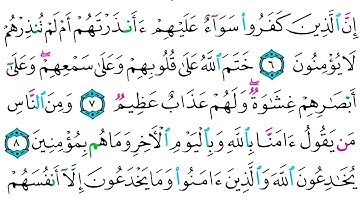 إِنَّ ٱلَّذِينَ كَفَرُوا۟ سَوَآءٌ عَلَيْهِمْ ءَأَنذَرْتَهُمْ أَمْ لَمْ تُنذِرْهُمْ
لَا يُؤْمِنُونَ ٦ خَتَمَ ٱللَّهُ عَلَىٰ قُلُوبِهِمْ وَعَلَىٰ سَمْعِهِمْ ۖ وَعَلَىٰٓ
أَبْصَٰرِهِمْ غِشَٰوَةٌ ۖ وَلَهُمْ عَذَابٌ عَظِيمٌ ٧ وَمِنَ ٱلنَّاسِ
مَن يَقُولُ ءَامَنَّا بِٱللَّهِ وَبِٱلْيَوْمِ ٱلْءَاخِرِ وَمَا هُم بِمُؤْمِنِينَ ٨
يُخَٰدِعُونَ ٱللَّهَ وَٱلَّذِينَ ءَامَنُوا۟ وَمَا يَخْدَعُونَ إِلَّآ أَنفُسَهُمْ